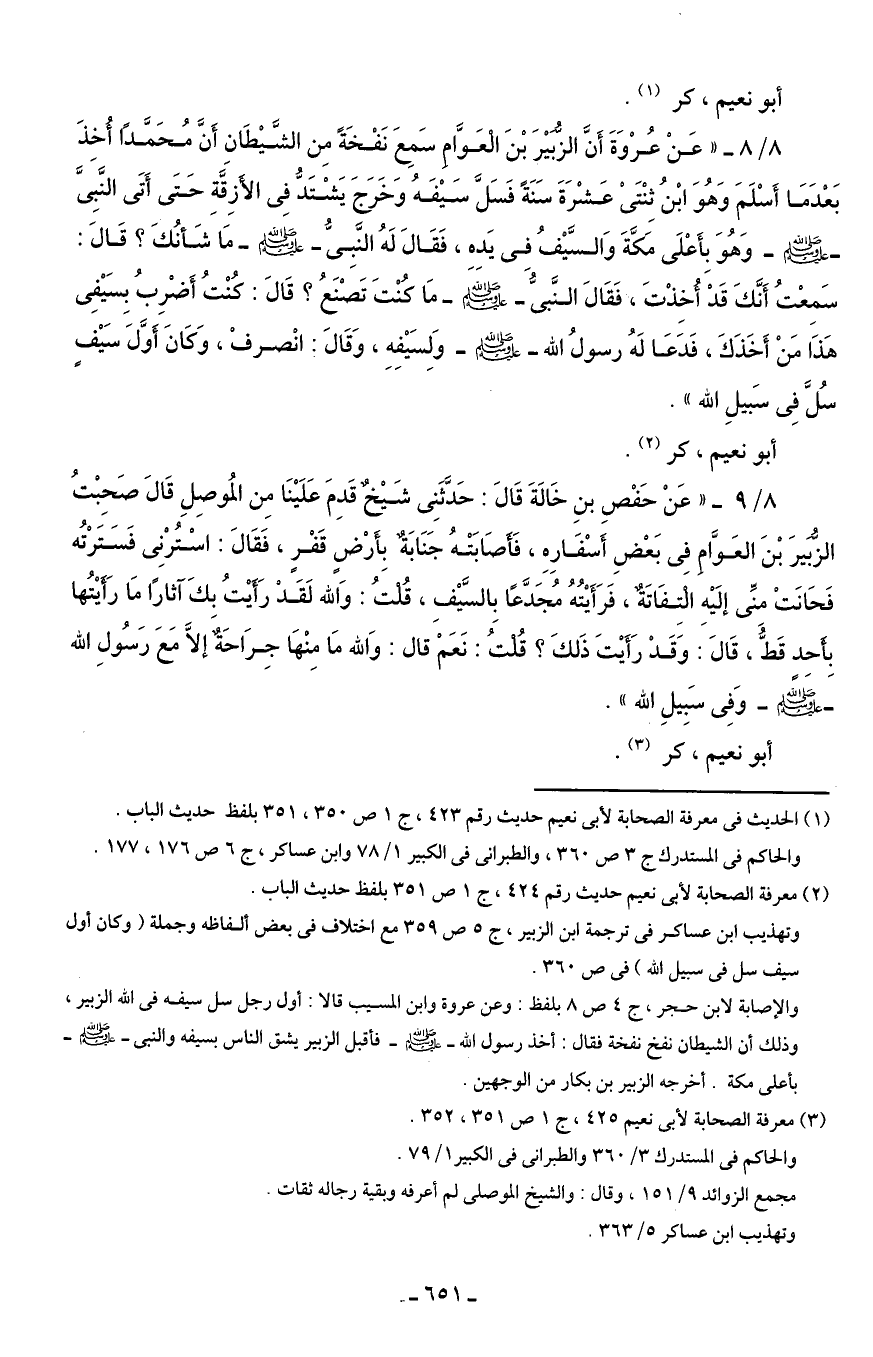 أبو نعيم ، كر (١) .
٨/ ٨ ـ « عَـنْ عُـرْوَةَ أَنَّ الزُّبَيْرَ بْنَ الْعَـوَّامِ سَمِعَ نَفْـخَةً مِن الشَّيْطَان أَنَّ مُـحَمَّـدًا أُخِذَ
بَعْدَمَـا أَسْلَمَ وَهُوَ ابْنُ ثِنْتَىْ عَـشْرَةَ سَنَةً فَسَلَّ سَيْـفَـهُ وَخَرَجَ يَشْـتَدُّ فِى الأَزِقَّةِ حَتَـى أَتَى النَّبِىَّ
ـ ﷺ ـ وَهُوَ بِأَعْلَى مَكَّةَ وَالـسَّيْفُ فِـى يَدِهِ ، فَقَـالَ لَهُ النَّبِـىُّ ـ ﷺ ـ مَا شَـأنُكَ ؟ قَـالَ :
سَمِعْتُ أَنَّكَ قَدْ أُخِذْتَ ، فَقَالَ الـنَّبِىُّ ـ ﷺ ـ مَا كُنْتَ تَصْنَعُ ؟ قَالَ : كُنْتُ أَضْرِبُ بِسَيْفِى
هَذَا مَنْ أَخَذَكَ ، فَدَعَـا لَهُ رسولُ الله ـ ﷺ ـ وَلِسَيْفِهِ ، وَقَالَ : انْصرِفْ ، وَكَانَ أَوَّلَ سَيْفٍ
سُلَّ فِى سَبِيلِ الله » .
أبو نعيم ، كر (٢) .
٨/ ٩ ـ « عَنْ حَفْصِ بنِ خَالَةَ قَالَ : حَدَّثَنِى شَـيْخٌ قَدِمَ عَلَيْنَا مِن المُوصلِ قَالَ صَحِبْتُ
الزُّبَيرَ بْنَ العَـوَّامِ فِى بَعْضِ أَسْفَـارِهِ ، فَأَصَابَتْـهُ جَنَابَةٌ بِأَرْضٍ قَفْـرٍ ، فَقَالَ : اسْـتُرْنِى فَسَـتَرْتُه
فَحَانَتْ مِنِّى إِلَيْهِ الْتِـفَاتَةٌ ، فَرَأَيْتُهُ مُجَدَّعًا بالسَّيْفِ ، قُلْتُ : وَالله لَقَدْ رَأَيْتُ بِكَ آثَارًا مَا رَأَيْتُها
بأَحد قَطُّ ، قَالَ : وَقَـدْ رَأَيْتَ ذَلكَ ؟ قُلْتُ : نَعَمْ قال : وَالله مَا مِنْهَا جِـرَاحَةٌ إِلاَّ مَعَ رَسُولِ الله
ـ ﷺ ـ وَفِى سَبِيلِ الله » .
أبو نعيم ، كر (٣) .
(١) الحديث فى معرفة الصحابة لأبى نعيم حديث رقم ٤٢٣ ، ج ١ ص ٣٥٠ ، ٣٥١ بلفظ حديث الباب .
والحاكم فى المستدرك ج ٣ ص ٣٦٠ ، والطبرانى فى الكبير ١/ ٧٨ وابن عساكر ، ج ٦ ص ١٧٦ ، ١٧٧ .
(٢) معرفة الصحابة لأبى نعيم حديث رقم ٤٢٤ ، ج ١ ص ٣٥١ بلفظ حديث الباب .
وتهذيب ابن عساكـر فى ترجمة ابن الزبير ، ج ٥ ص ٣٥٩ مع اختلاف فى بعض ألـفاظه وجملة ( وكان أول
سيف سل فى سبيل الله ) فى ص ٣٦٠ .
والإصابة لابن حـجر ، ج ٤ ص ٨ بلفظ : وعن عروة وابن المسيب قالا : أول رجل سل سيفـه فى الله الزبير ،
وذلك أن الشيطان نفخ نفخة فقال : أخذ رسول الله ـ ﷺ ـ فأقبل الزبير يشق الناس بسيفه والنبى ـ ﷺ ـ
بأعلى مكة . أخرجه الزبير بن بكار من الوجهين .
(٣) معرفة الصحابة لأبى نعيم ٤٢٥ ، ج ١ ص ٣٥١ ، ٣٥٢ .
والحاكم فى المستدرك ٣/ ٣٦٠ والطبرانى فى الكبير ١/ ٧٩ .
مجمع الزوائد ٩/ ١٥١ ، وقال : والشيخ الموصلى لم أعرفه وبقية رجاله ثقات .
وتهذيب ابن عساكر ٥/ ٣٦٣ .
ـ ٦٥١ ـ